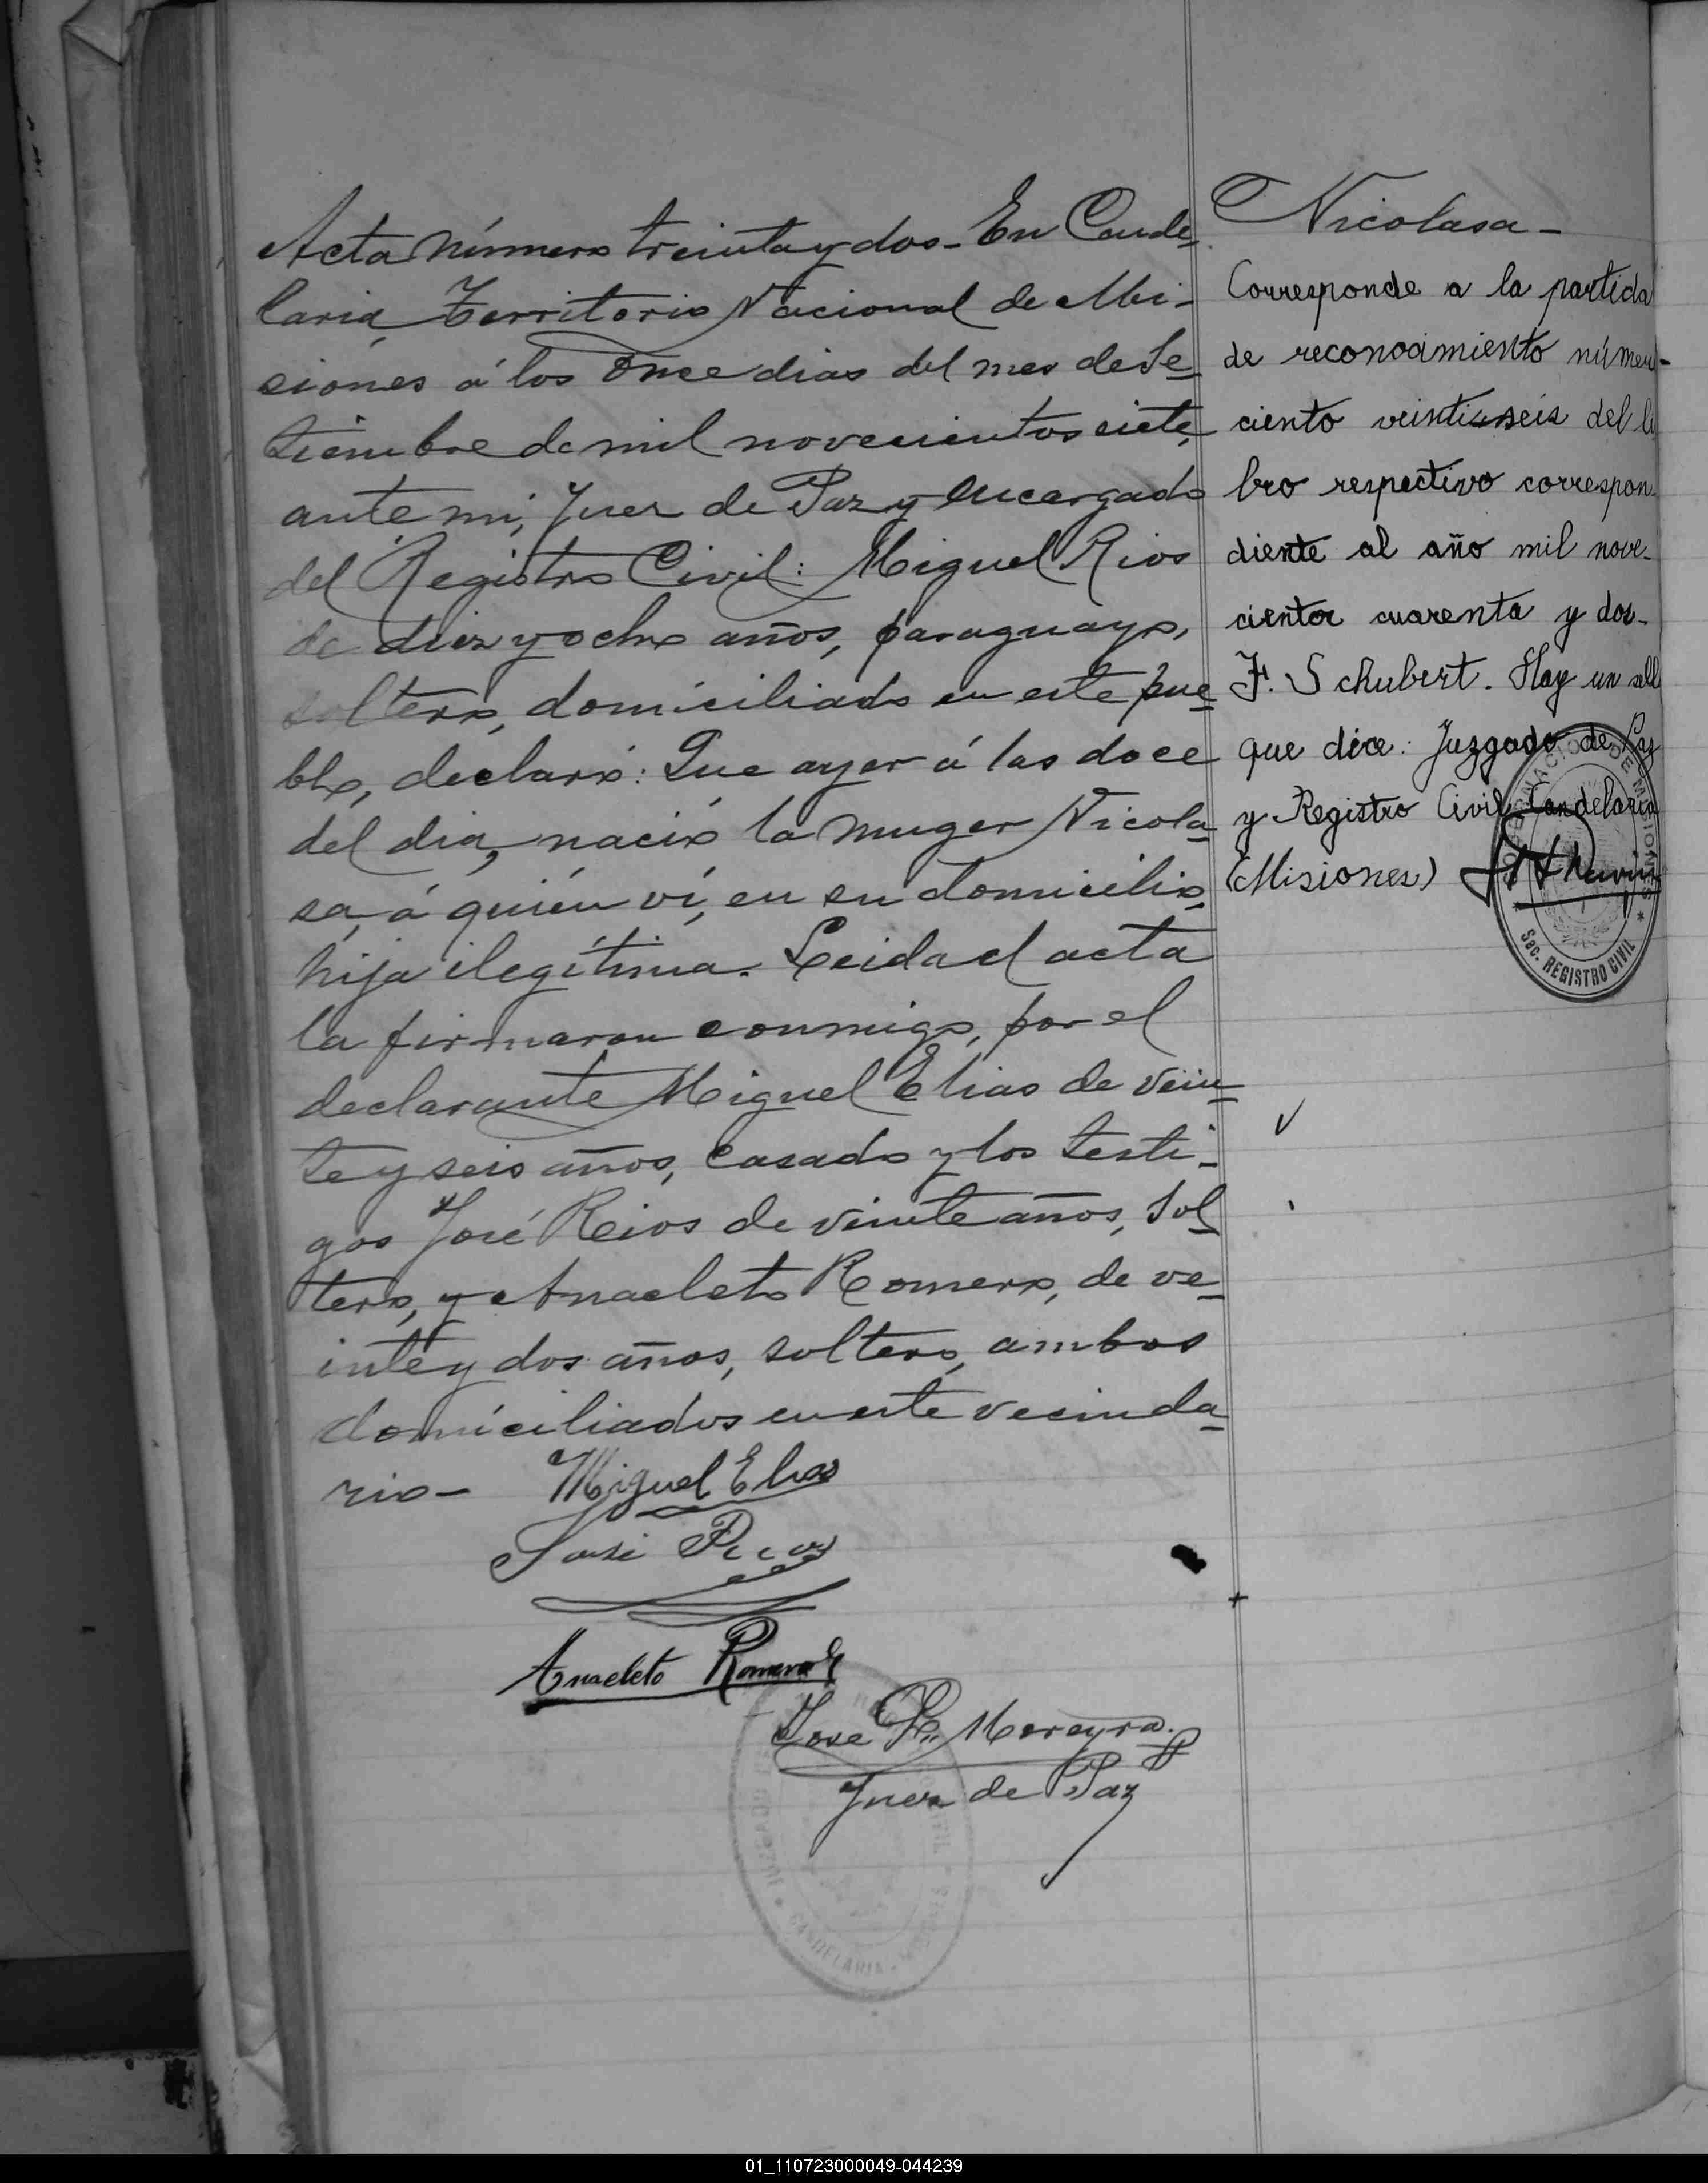 Acta número treinta y dos- En Cande-
laria, Territorio Nacional de Mi-
siones á los once dias del mes de Se-
tiembre de mil novecientos siete,
ante mi, Juez de Paz y encargado
del Registro Civil: Miguel Rios
de diez y ocho años, paraguayo,
soltero, domiciliado en este pue-
blo, declaró: Que ayer á las doce
del dia, nació la muger Nicola-
sa, á quién ví, en su domicilio,
hija ilegítima. Leida el acta
la firmaron conmigo, por el
declarante Miguel Elias de vein-
te y seis años, casado y los testi-
gos José Rios de veinte años, sol-
tero, y Anacleto Romero, de ve-
inte y dos años, soltero, ambos
domiciliados en este vecinda-
rio-
Miguel Elias
José Rios
Anacleto Romero
Jose Mereyra
Juez de Paz
CANDELARIA
Nicolasa-
Corresponde a la partida
de reconocimiento número
ciento veintiseis del li
bro respectivo correspon-
diente al año mil nove-
cientos cuarenta y dos-
F. Schubert. Hay un sello
que dice: Juzgado de Paz
y Registro Civil Candelaria
(Misiones)
GOBERNACION DE MISIONES
Sec. REGISTRO CIVIL
01_110723000049-044239